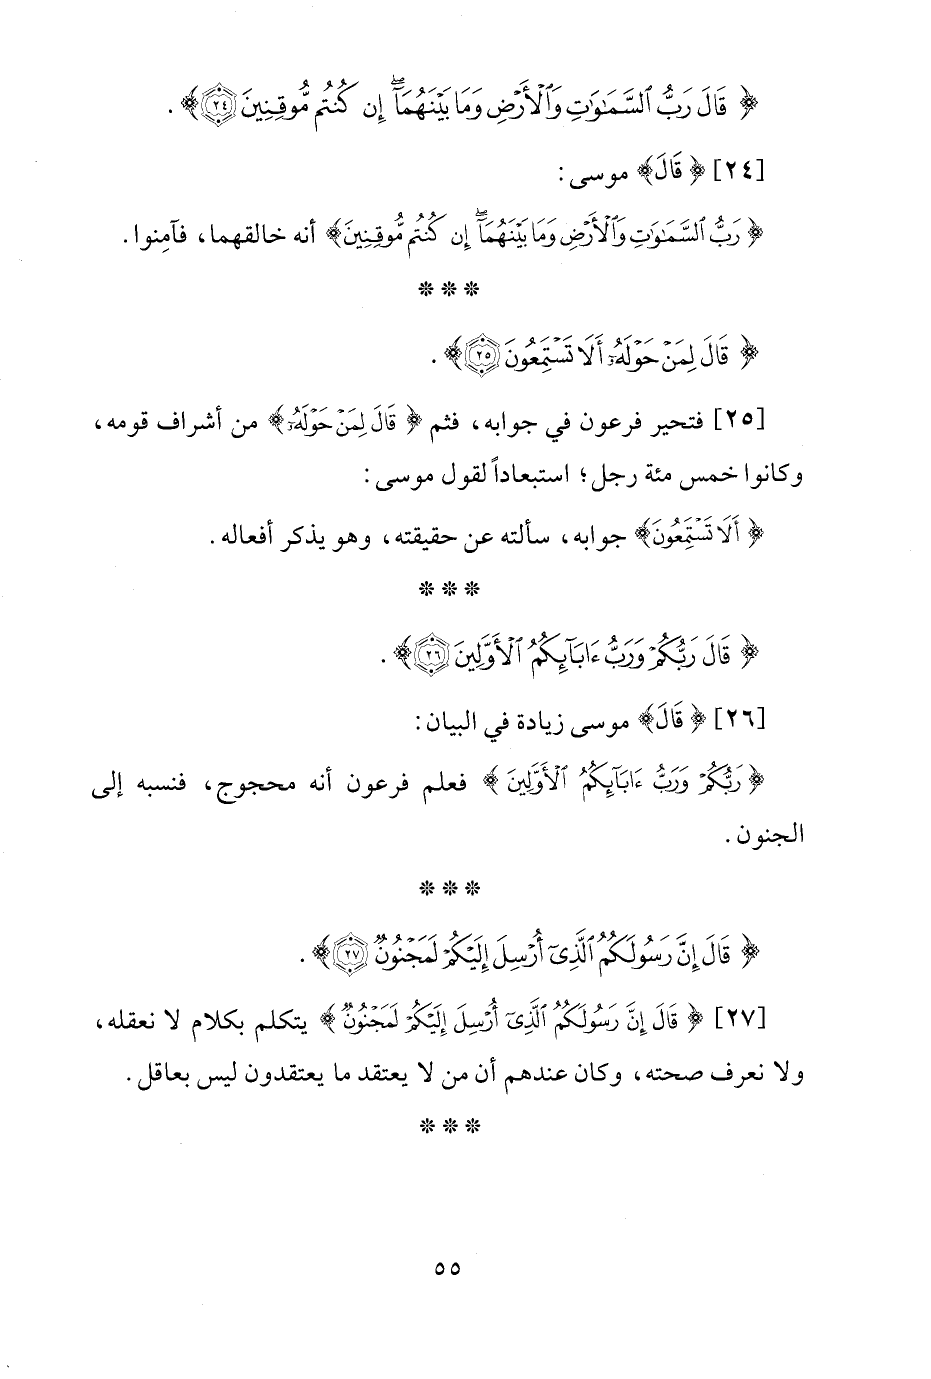 ﴿ قَالَ رَبُّ ٱلسَّمَٰوَٰتِ وَٱلْأَرْضِ وَمَا بَيْنَهُمَآۖ إِن كُنتُم مُّوقِنِينَ ۝٢٤ ﴾ .
[٢٤] ﴿ قَالَ ﴾ موسى :
﴿ رَبُّ ٱلسَّمَٰوَٰتِ وَٱلْأَرْضِ وَمَا بَيْنَهُمَآۖ إِن كُنتُم مُّوقِنِينَ ﴾ أنه خالقهما، فآمِنوا .
* * *
﴿ قَالَ لِمَنْ حَوْلَهُۥٓ أَلَا تَسْتَمِعُونَ ۝٢٥ ﴾ .
[٢٥] فتحير فرعون في جوابه، فثم ﴿ قَالَ لِمَنْ حَوْلَهُۥٓ ﴾ من أشراف قومه،
وكانوا خمس مئة رجل؛ استبعاداً لقول موسى :
﴿ أَلَا تَسْتَمِعُونَ ﴾ جوابه، سألته عن حقيقته، وهو يذكر أفعاله .
* * *
﴿ قَالَ رَبُّكُمْ وَرَبُّ ءَابَآئِكُمُ ٱلْأَوَّلِينَ ۝٢٦ ﴾ .
[٢٦] ﴿ قَالَ ﴾ موسى زيادة في البيان :
﴿ رَبُّكُمْ وَرَبُّ ءَابَآئِكُمُ ٱلْأَوَّلِينَ ﴾ فعلم فرعون أنه محجوج، فنسبه إلى
الجنون .
* * *
﴿ قَالَ إِنَّ رَسُولَكُمُ ٱلَّذِىٓ أُرْسِلَ إِلَيْكُمْ لَمَجْنُونٌ ۝٢٧ ﴾ .
[٢٧] ﴿ قَالَ إِنَّ رَسُولَكُمُ ٱلَّذِىٓ أُرْسِلَ إِلَيْكُمْ لَمَجْنُونٌ ﴾ يتكلم بكلام لا نعقله،
ولا نعرف صحته، وكان عندهم أن من لا يعتقد ما يعتقدون ليس بعاقل .
* * *
٥٥